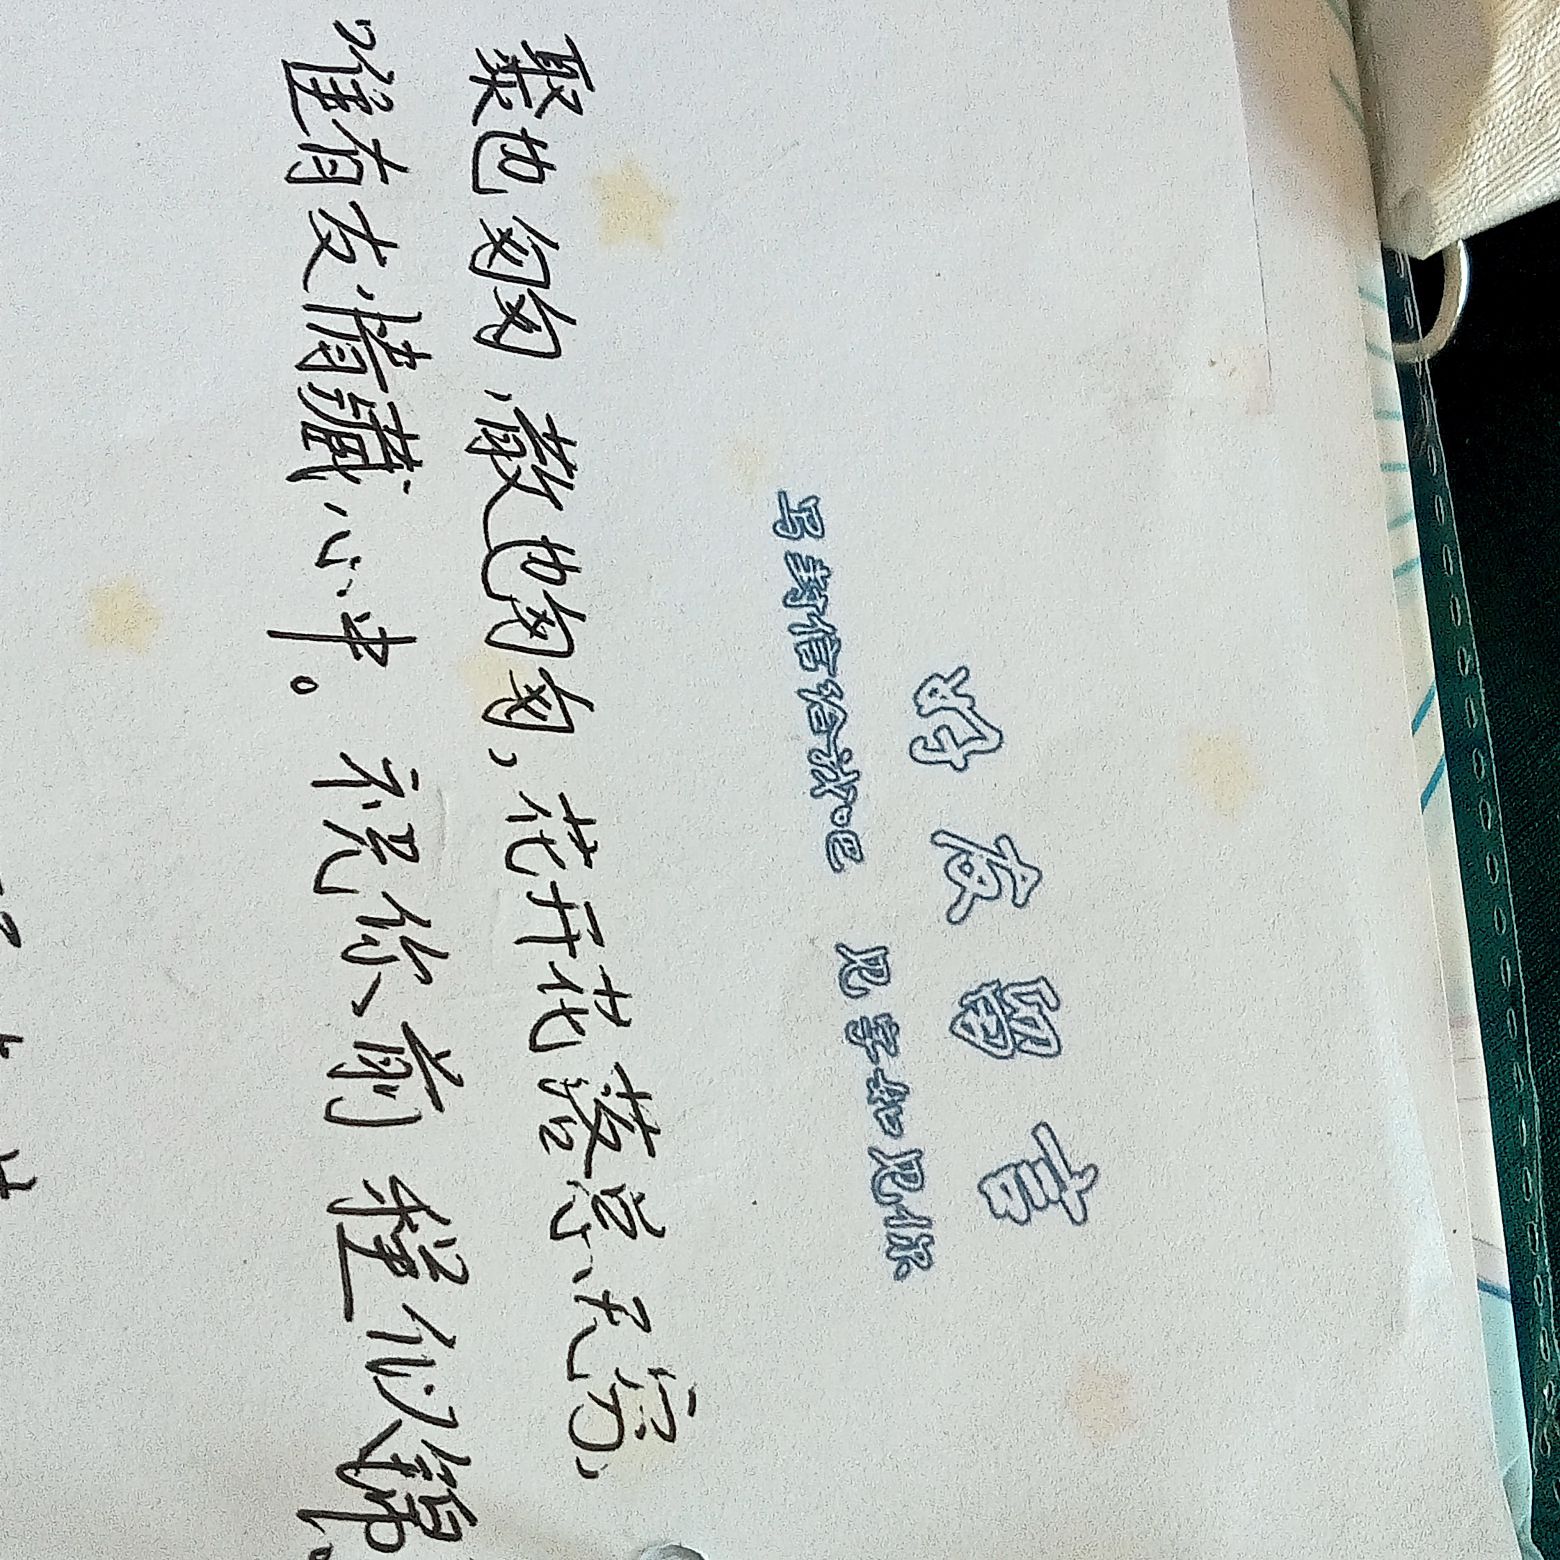 好友留言
写封信给我吧 见字如见你
聚也匆匆，散也匆匆，花开花落总无穷，
唯有友情藏心中。祝你前程似锦